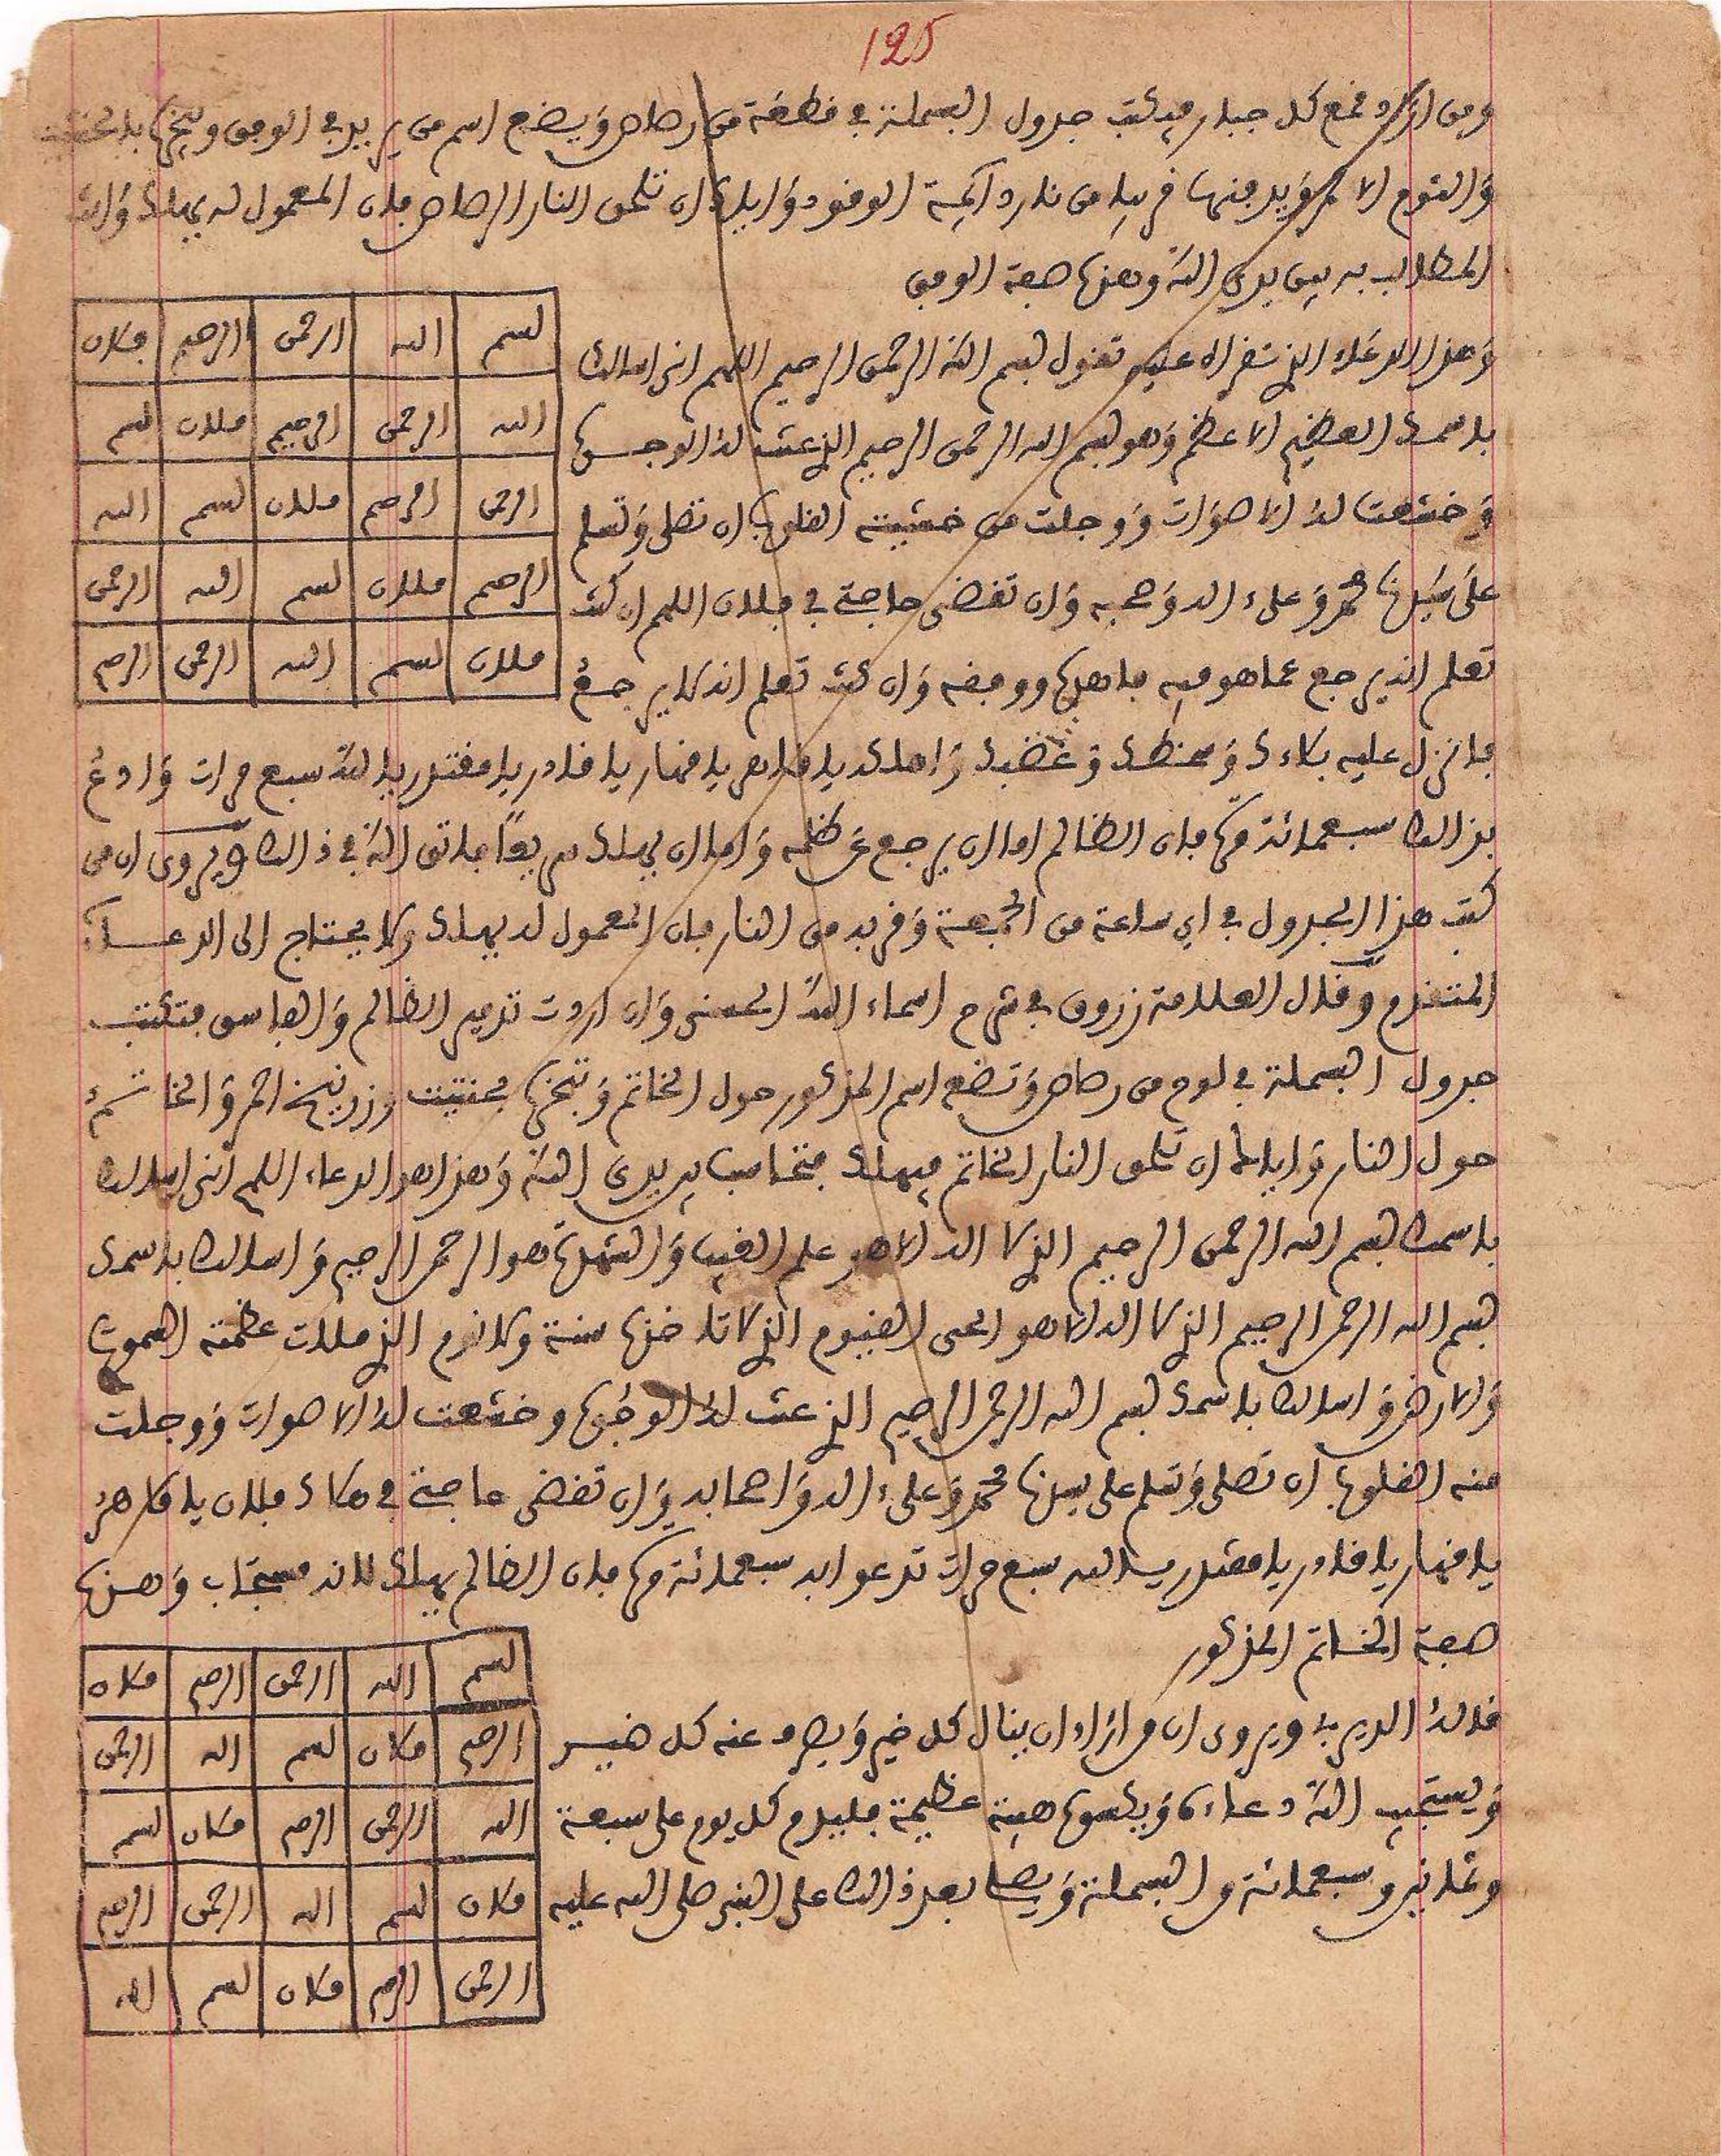 125
ومن اراد قمع كل جبار فيكتب جدول البسملة في قطعة من رصاص ويضع اسم من يريد في الوفق ويبخرها بالحنتيت
والثوم الاحمر ويدفنها قريبا من نار دائمة الوقود واياك ان تلحق النار الرصاص فان المعمول له يهلك والله
المطالب به بين يدي الله وهذه صفة الوفق
بسم الله الرحمن الرحيم فلان
الله الرحمن الرحيم فلان بسم
الرحمن الرحيم فلان بسم الله
الرحيم فلان بسم الله الرحمن
فلان بسم الله الرحمن الرحيم
وهذا الدعاء الذي تقراه عليه تقول بسم الله الرحمن الرحيم اللهم اني اسالك
باسمك العظيم الاعظم وهو بسم الله الرحمن الرحيم الذي عنت له الوجوه
وخشعت له الاصوات ووجلت من خشيته القلوب ان تصلي وتسلم
على سيدنا محمد وعلى ءاله وصحبه وان تقضي حاجتي في فلان اللهم ان كنت
تعلم انه يرجع عما هو فيه فاهده ووفقه وان كنت تعلم انه لا يرجع
فانزل عليه بلاءك وسخطك وغضبك واهلكه يا قاهر يا قهار يا قادر يا مقتدر يا الله سبع مرات وادع
بذالك سبعمائة مرة فان الظالم اما ان يرجع عن ظلمه واما ان يهلك سريعا فاتق الله في ذالك ويروى ان من
كتب هذا الجدول في اي ساعة من الجمعة وقربه من النار فان المعمول له يهلك ولا يحتاج الى الدعاء
المتقدم وقال العلامة زروق في شرح اسماء الله الحسنى وان اردت تدمير الظالم والفاسق فتكتب
جدول البسملة في لوح من رصاص وتضع اسم المذكور حول الخاتم وتبخره بحنتيت وزرنيخ احمر والخاتم
حول النار واياك ان تلحق النار الخاتم فيهلك فتحاسب بين يدي الله وهذا هو الدعاء اللهم اني اسالك
باسمك بسم الله الرحمن الرحيم الذي لا اله الا هو علم الغيب والشهدة هو الرحمن الرحيم واسالك باسمك
بسم الله الرحمن الرحيم الذي لا اله الا هو الحي القيوم الذي لا تاخذه سنة ولا نوم الذي ملات عظمته السموت
والارض واسالك باسمك بسم الله الرحمن الرحيم الذي عنت له الوجوه وخشعت له الاصوات ووجلت
منه القلوب ان تصلي وتسلم على سيدنا محمد وعلى ءاله واصحابه وان تقضي حاجتي في هلاك فلان يا قاهر
يا قهار يا قادر يا مقتدر يا الله سبع مرات تدعوا به سبعمائة مرة فان الظالم يهلك لانه مستجاب وهذه
صفة الخاتم المذكور
بسم الله الرحمن الرحيم فلان
الرحيم فلان بسم الله الرحمن
الله الرحمن الرحيم فلان بسم
فلان بسم الله الرحمن الرحيم
الرحمن الرحيم فلان بسم الله
قاله الديربي ويروى ان من اراد ان ينال كل خير ويصرف عنه كل ضير
ويستجيب الله دعاءه ويكسوه هيبة عظيمة فليدم كل يوم على سبعة
وثمانين وسبعمائة من البسملة ويصلي بعد ذالك على النبي صلى الله عليه